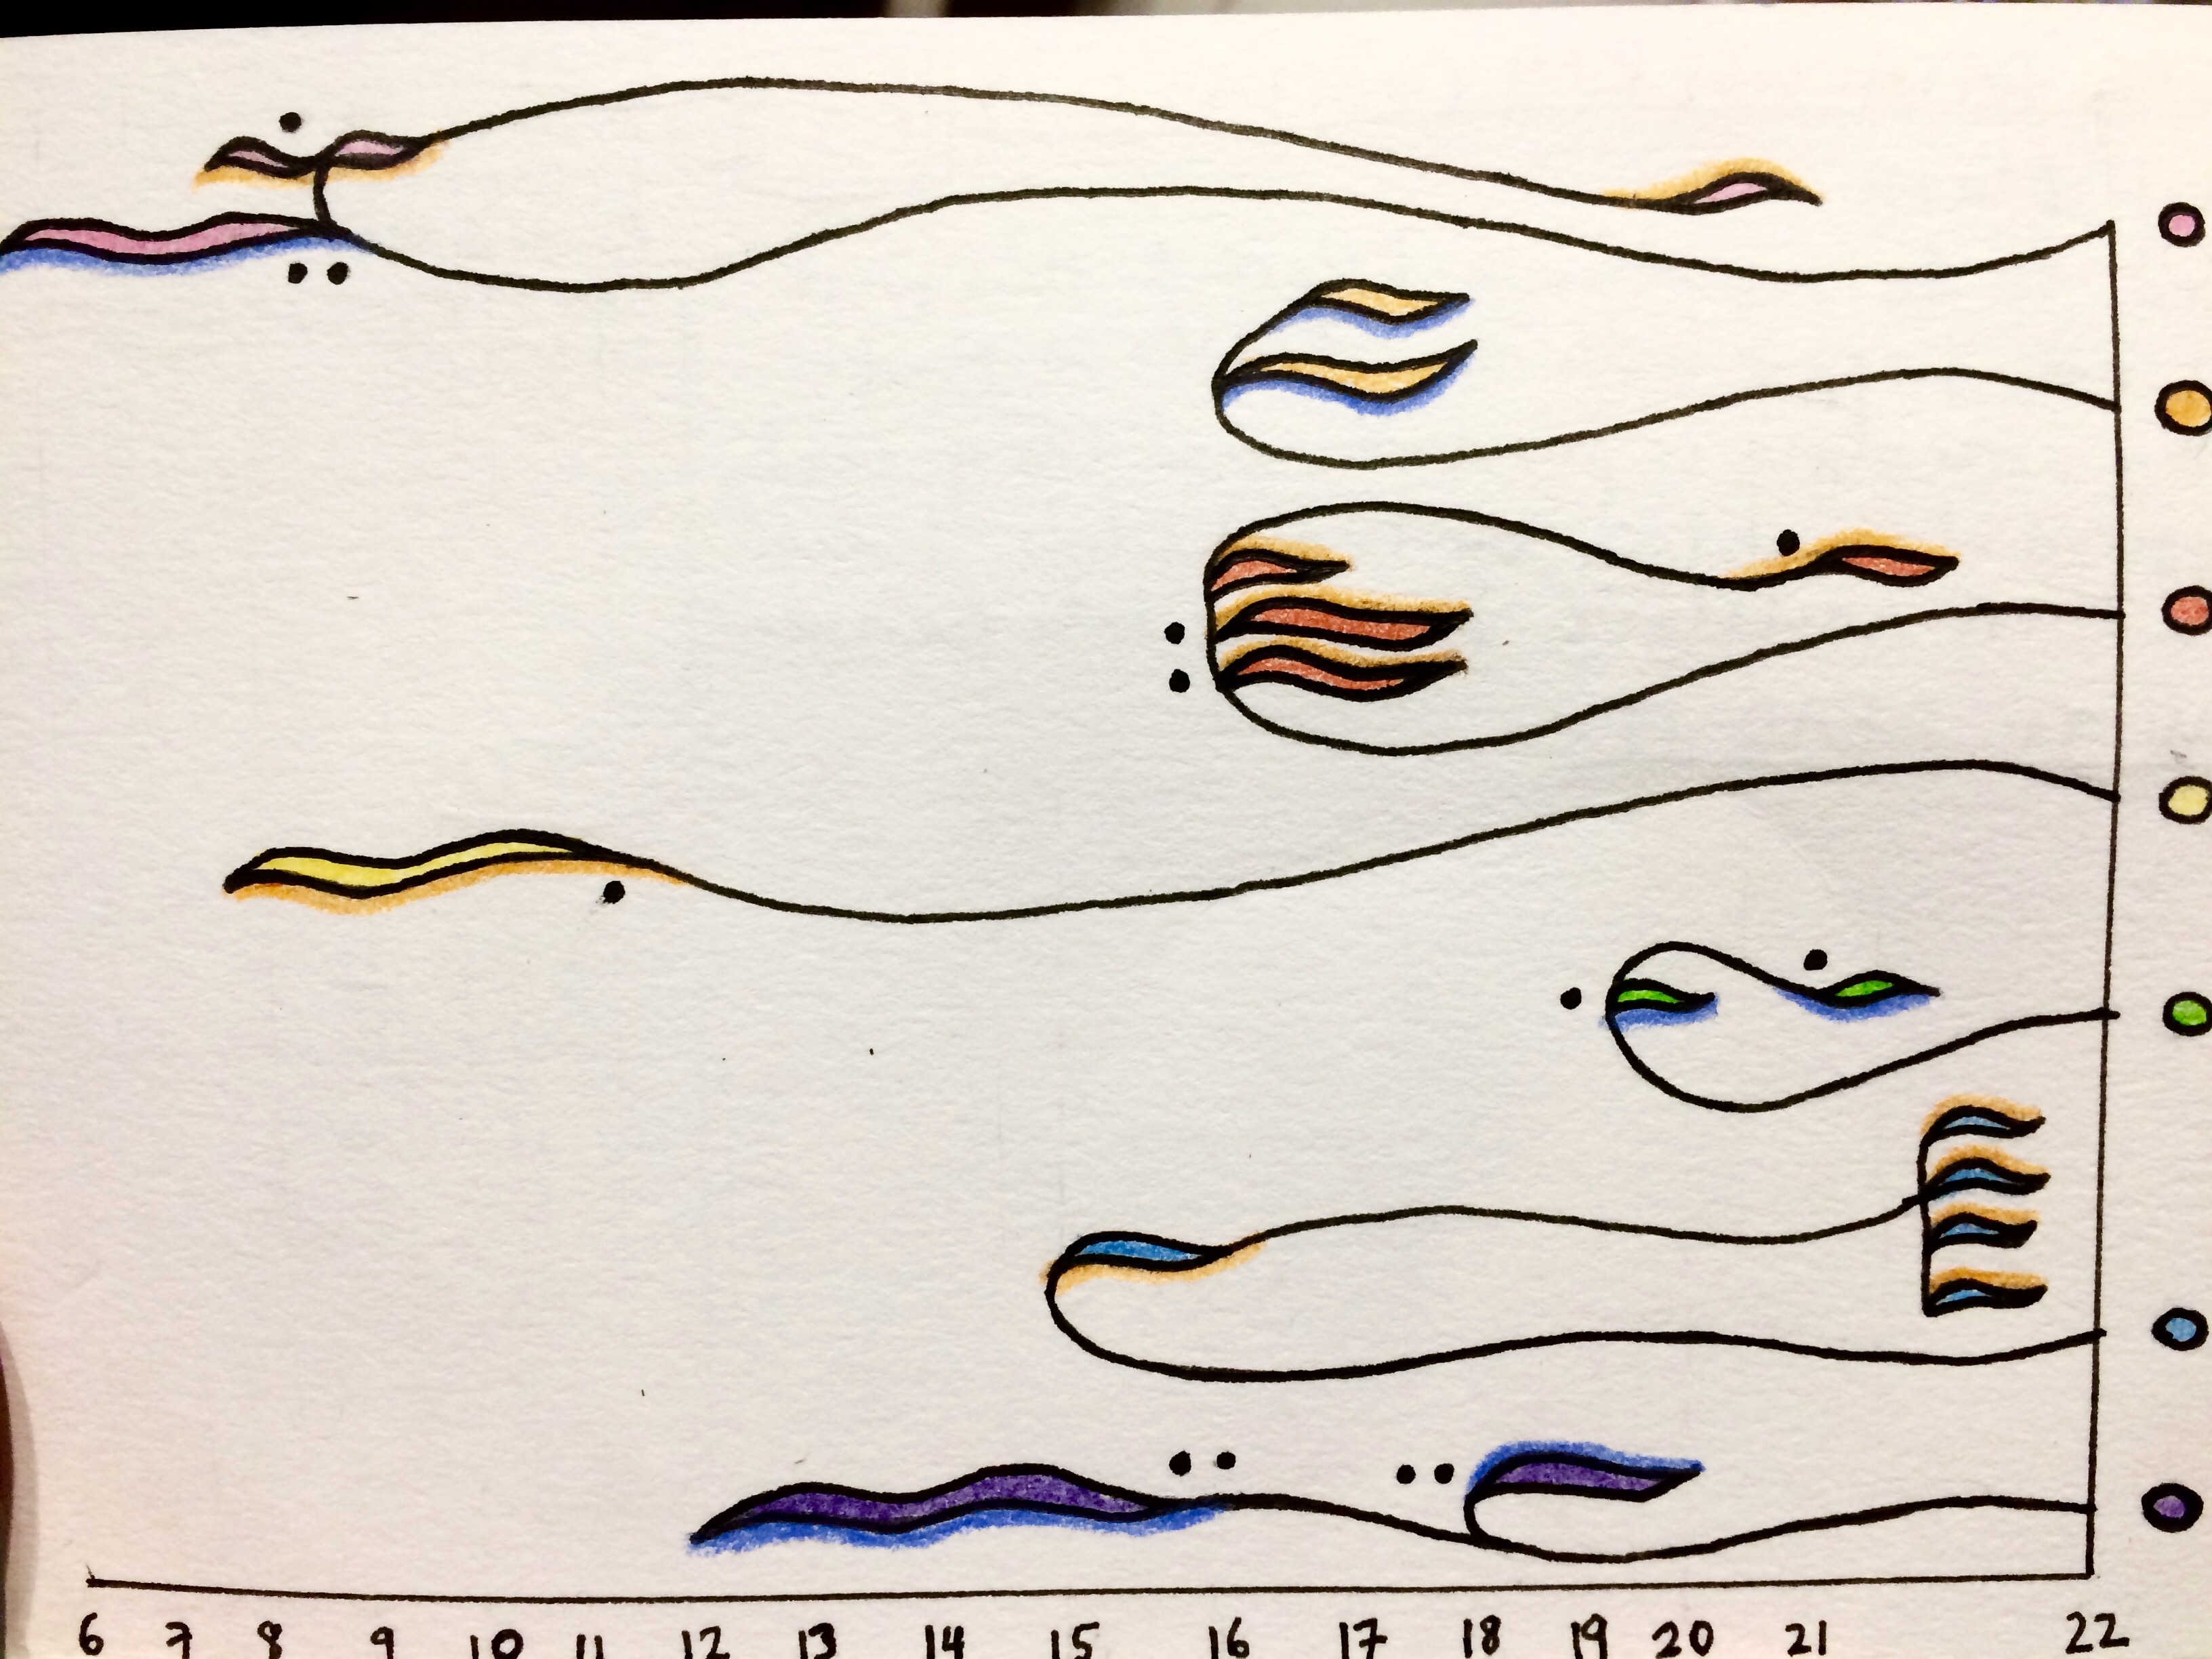 6 7 8 9 10 11 12 13 14 15 16 17 18 19 20 21 22